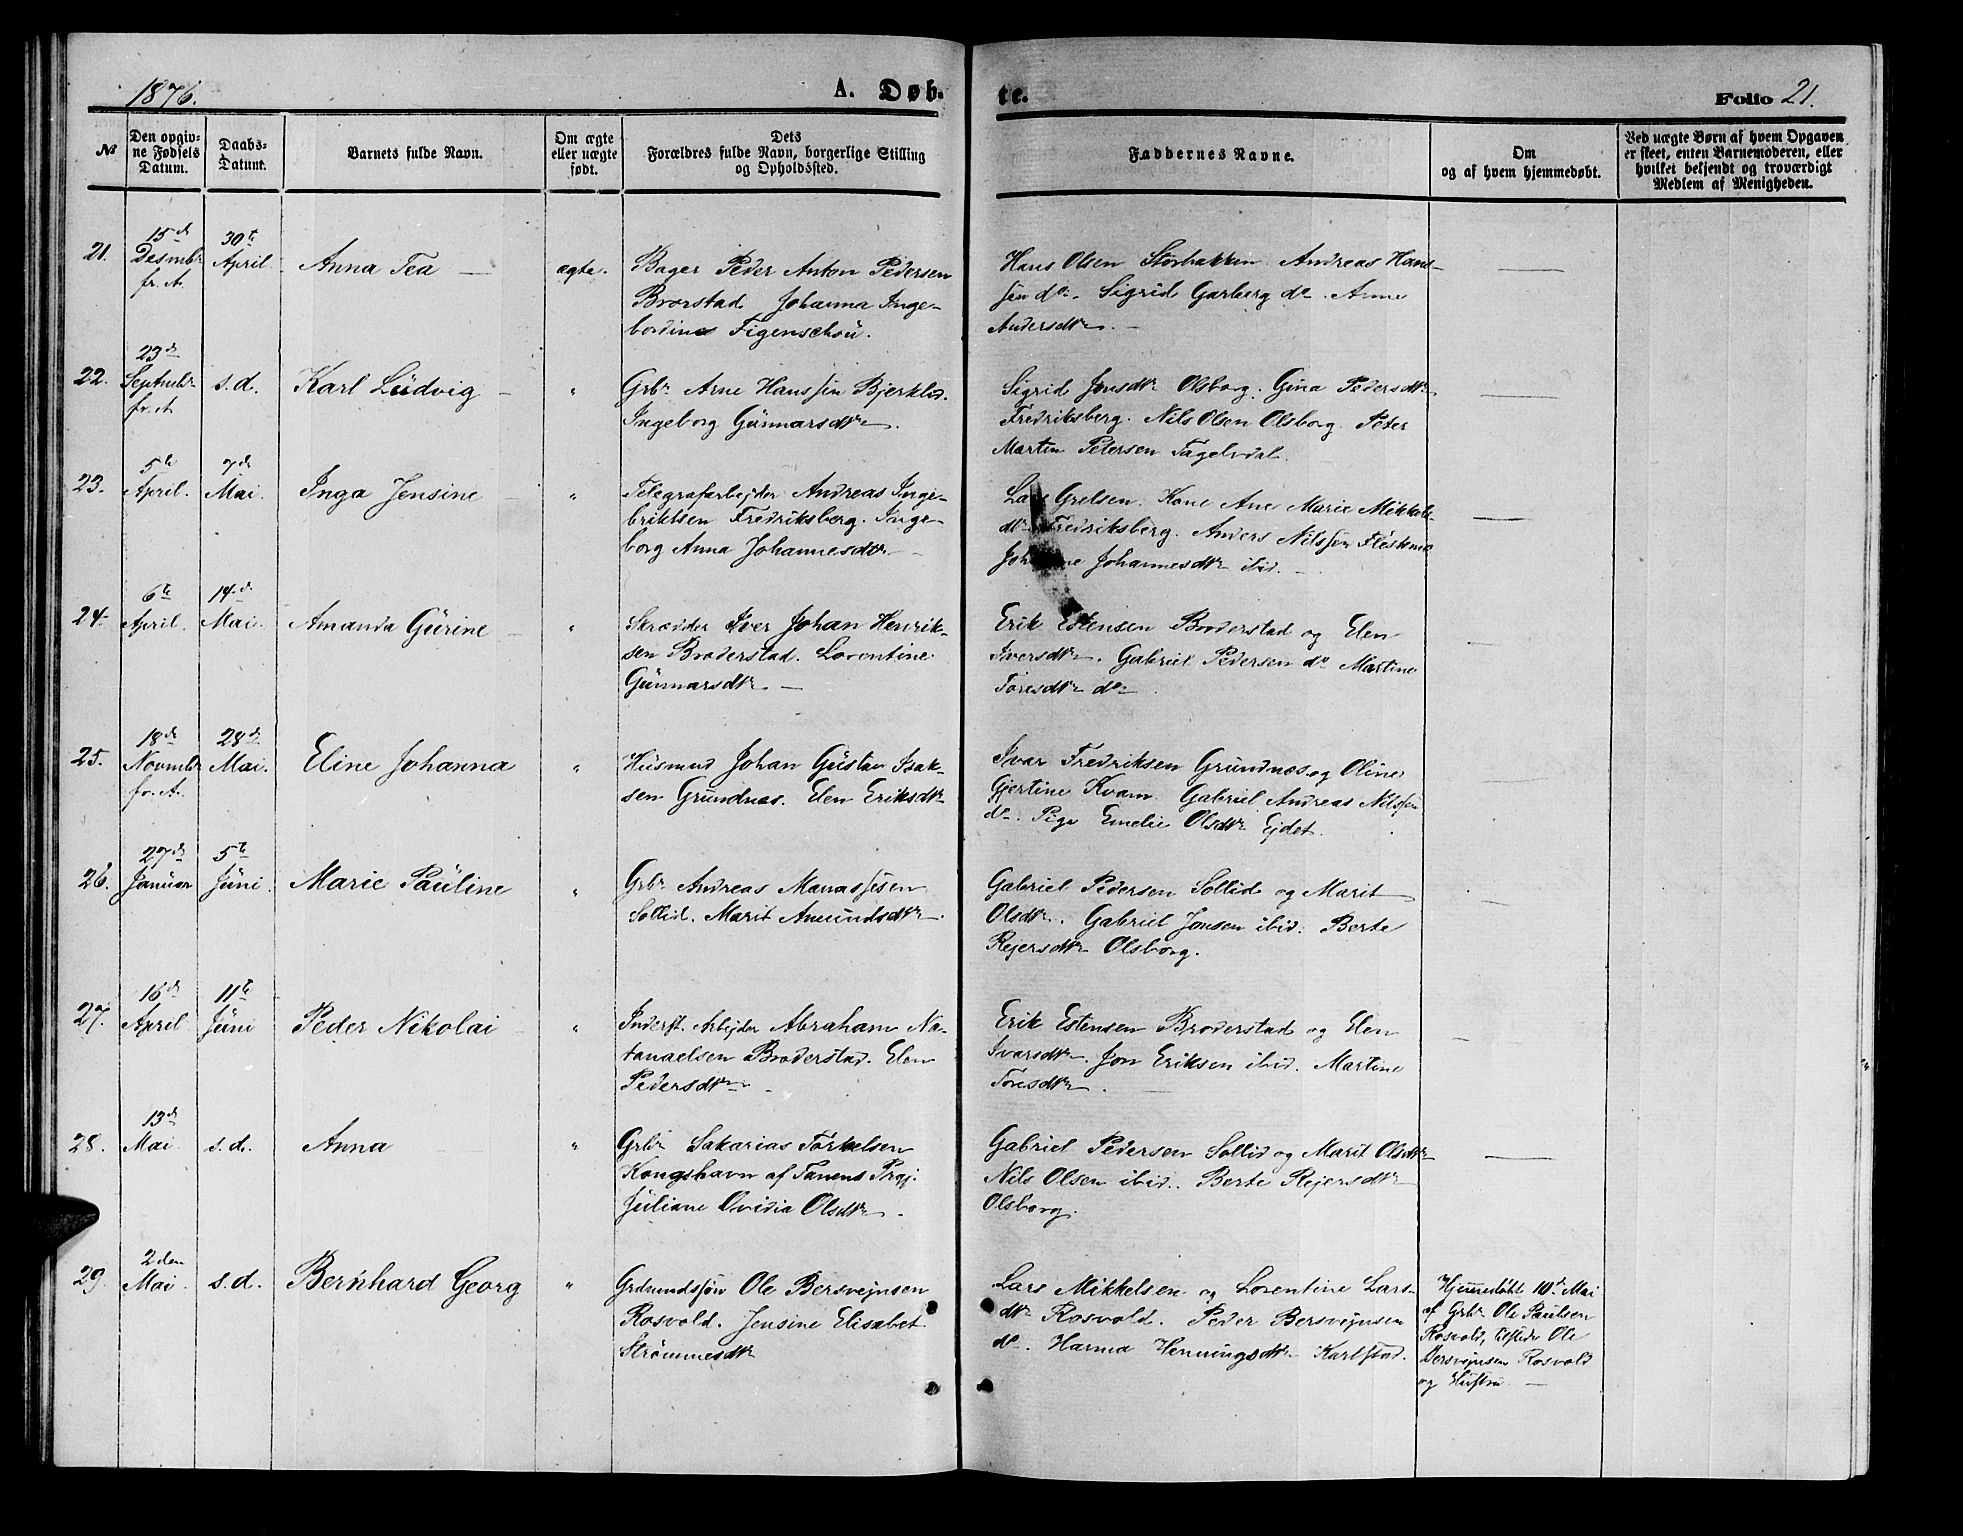 1876.
A. Døb-
te.
Folio 21.
No
Den opgiv-
ne Fødsels
Datum.
Daabs-
Datum.
Barnets fulde Navn.
Om ægte
eller uægte
født.
Dets
Forældres fulde Navn, borgerlige Stilling
og Opholdssted.
Faddernes Navne.
Om
og af hvem hjemmedøbt.
Ved uægte Børn af hvem Opgaven
er skeet, enten Barnemoderen, eller
hvilket bekjendt og troværdigt
Medlem af Menigheden.
21.
15de
Desmbr
fr. A.
30te
April
Anna Tea
ægte.
Bager Peder Anton Pedersen
Brorstad Johanna Inge-
bordine Figenschoü.
Hans Olsen Storbakken. Andreas Hans-
sen do. Sigrid Garberg do. Anne
Andersdtr.
22.
23de
Septmbr
fr. A.
s.d.
Karl Lüdvig
"
Grbr Arne Hanssen Bjerklid.
Ingeborg Günnarsdtr.
Sigrid Jonsdtr Olsborg. Gina Pedersdtr
Fredriksberg. Nils Olsen Olsborg. Peter
Martin Petersen Fagelidal.
23.
5te
April.
7de
Mai.
Inga Jensine
"
Telegrafarbejder Andreas Inge-
briktsen Fredriksberg. Inge-
borg Anna Johannesdtr
Lars Grelsen. Kone Ane Marie Mikkels-
dtr Fredriksberg. Anders Nilssen Fleskmo
Johannesdtr ibid.
24.
6te
April.
14de
Mai.
Amanda Gürine
"
Skrædder Iver Johan Henrik-
sen Broderstad. Lorentine
Günnarsdtr
Erik Estensen Broderstad og Elen
Iversdtr. Gabriel Pedersen do Martine
Toresdtr do
25.
18de
Novmbr
fr. A.
28de
Mai.
Eline Johanna
"
Hüsmnd Johan Güstav Isak-
sen Grundnæs. Elen Eriksdtr
Ivar Fredriksen Grundnæs og Oline
Gjertine Kvam. Gabriel Andreas Nilssen
do. Pige Emelie Olsdtr Ejdet.
26.
27de
Januar
5te
Jüni.
Marie Paüline
"
Grbr Andreas Manassesen
Sollid. Marit Amündsdtr.
Gabriel Pedersen Sollid og Marit
Olsdtr. Gabriel Jonsen ibid: Berte
Rejersdtr Olsborg.
27.
16de
April
11te
Jüni
Peder Nikolai
"
Inderst. Arbejder Abraham Na-
tanaelsen Broderstad. Elen
Pedersdtr
Erik Estensen Broderstad og Elen
Ivarsdtr. Jon Eriksen ibid. Martine
Toresdtr
28.
13de
Mai
s.d.
Anna
"
Grbr Sakarias Torkelsen
Kongshavn af Tanens Prgj.
Jüliane Ovidia Olsdtr.
Gabriel Pedersen Sollid og Marit Olsdtr
Nils Olsen ibid. Berte Rejersdtr
Olsborg.
29.
2den
Mai.
s.d.
Bernhard Georg
"
Grdmndssøn Ole Bersvejnsen
Rosvold. Jensine Elisabet
Strømmesdtr
Lars Mikkelsen og Lorentine Lars-
dtr Rosvold. Peder Bersvejnsen
do. Hanna Henningsdtr Karlstad.
Hjemmedøbt 10de Mai
af Grbr Ole Paulsen
Rosvold, tilstede Ole
Bersvejnsen Rosvold
og Hustru.